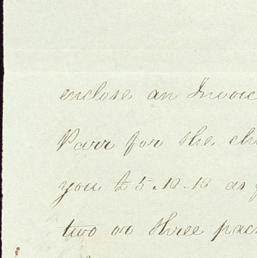 enclose an Invoic
Parr for the ch
you to 5.10.10 as
two or three pac